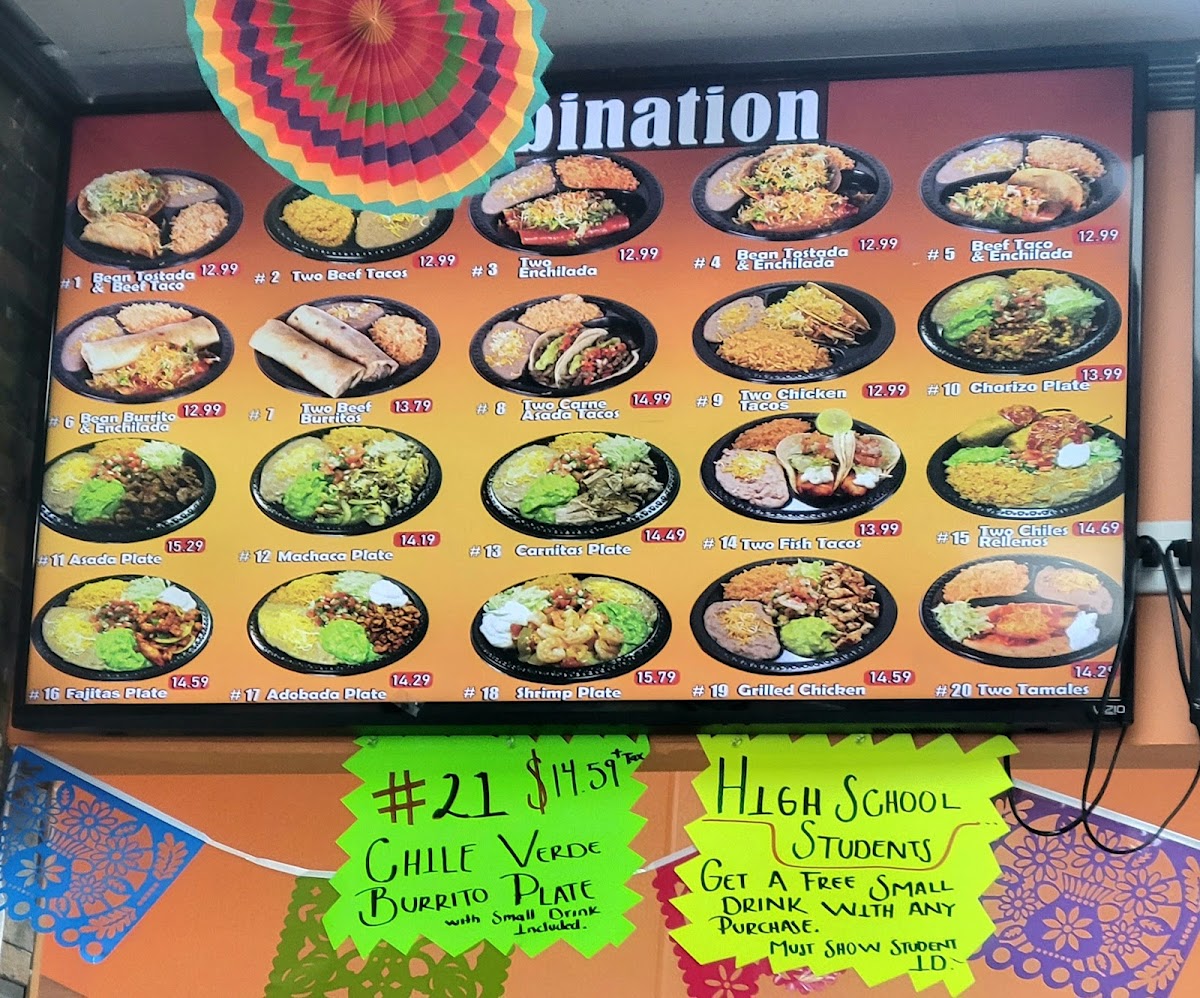 bination
#1 Bean Tostada 12.99
& Beef Taco
#2 Two Beef Tacos 12.99
#3 Two 12.99
Enchilada
#4 Bean Tostada 12.99
& Enchilada
#5 Beef Taco 12.99
& Enchilada
#6 Bean Burrito 12.99
& Enchilada
#7 Two Beef 13.79
Burritos
#8 Two Carne 14.99
Asada Tacos
#9 Two Chicken 12.99
Tacos
#10 Chorizo Plate 13.99
#11 Asada Plate 15.29
#12 Machaca Plate 14.19
#13 Carnitas Plate 14.49
#14 Two Fish Tacos 13.99
#15 Two Chiles 14.69
Rellenos
#16 Fajitas Plate 14.59
#17 Adobada Plate 14.29
#18 Shrimp Plate 15.79
#19 Grilled Chicken 14.59
#20 Two Tamales
VIZIO
#21 $14.59 + Tax
Chile Verde
Burrito Plate
with Small Drink
Included.
High School
Students
Get a Free Small
Drink with any
Purchase.
Must Show Student
I.D.